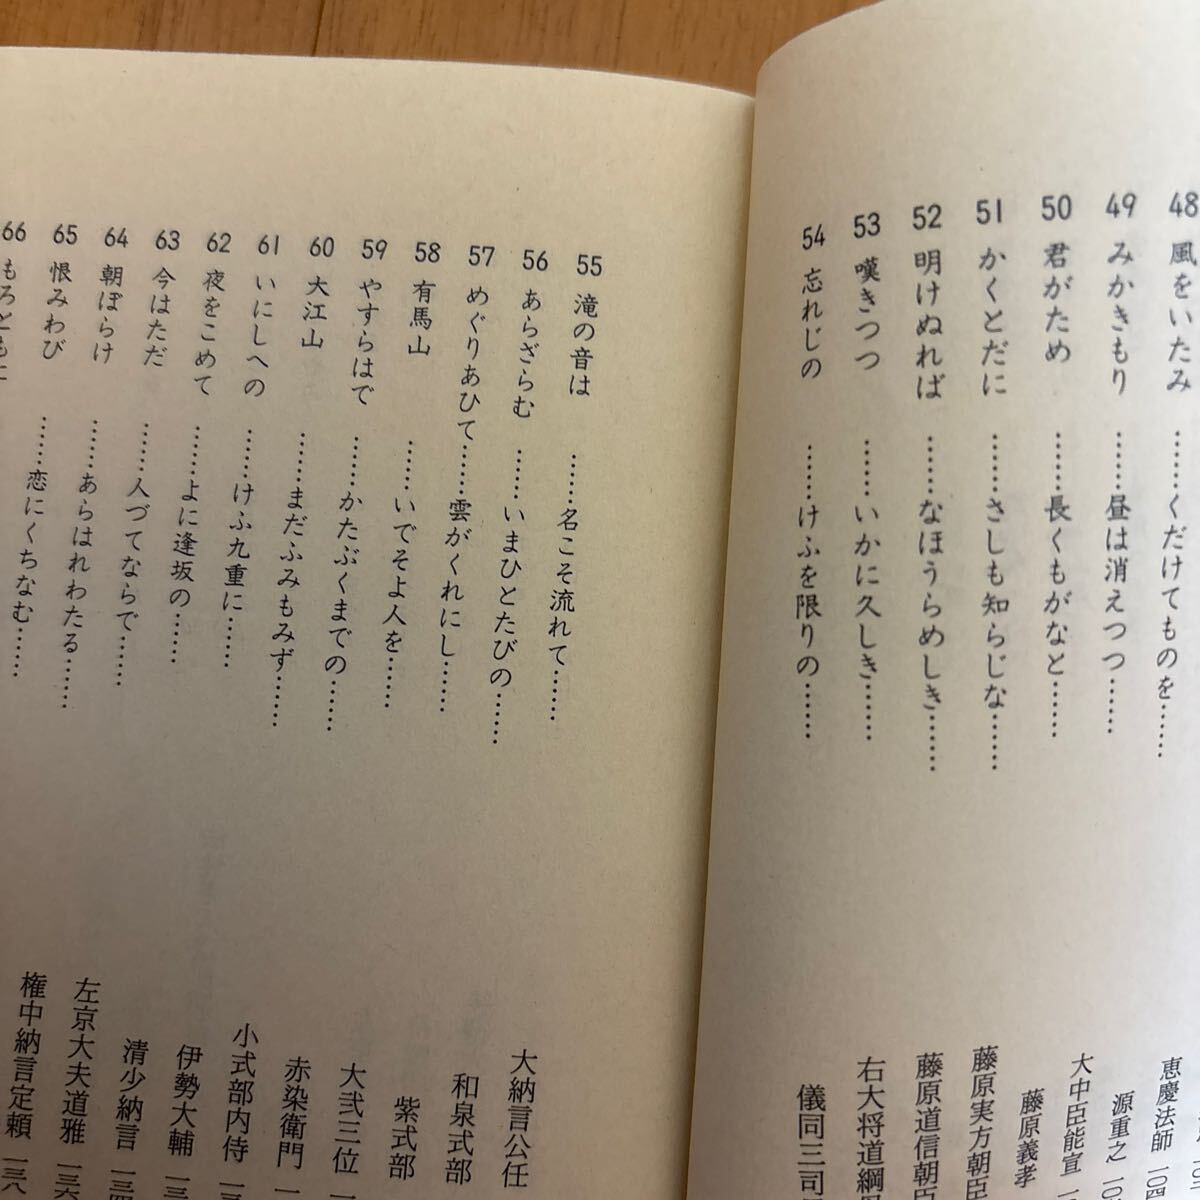 恵慶法師 一〇四
48 風をいたみ……くだけてものを…… 源重之 一〇
49 みかきもり……昼は消えつつ…… 大中臣能宣 一
50 君がため……長くもがなと…… 藤原義孝
51 かくとだに……さしも知らじな…… 藤原実方朝臣
52 明けぬれば……なほうらめしき…… 藤原道信朝臣
53 嘆きつつ……いかに久しき…… 右大将道綱
54 忘れじの……けふを限りの…… 儀同三司
55 滝の音は……名こそ流れて…… 大納言公任
56 あらざらむ……いまひとたびの…… 和泉式部
57 めぐりあひて……雲がくれにし…… 紫式部
58 有馬山……いでそよ人を…… 大弐三位 一
59 やすらはで……かたぶくまでの…… 赤染衛門 一
60 大江山……まだふみもみず…… 小式部内侍 一三
61 いにしへの……けふ九重に…… 伊勢大輔 一三
62 夜をこめて……よに逢坂の…… 清少納言 一三四
63 今はただ……人づてならで…… 左京大夫道雅 一三六
64 朝ぼらけ……あらはれわたる…… 権中納言定頼 一三八
65 恨みわび……恋にくちなむ……
66 もろともに